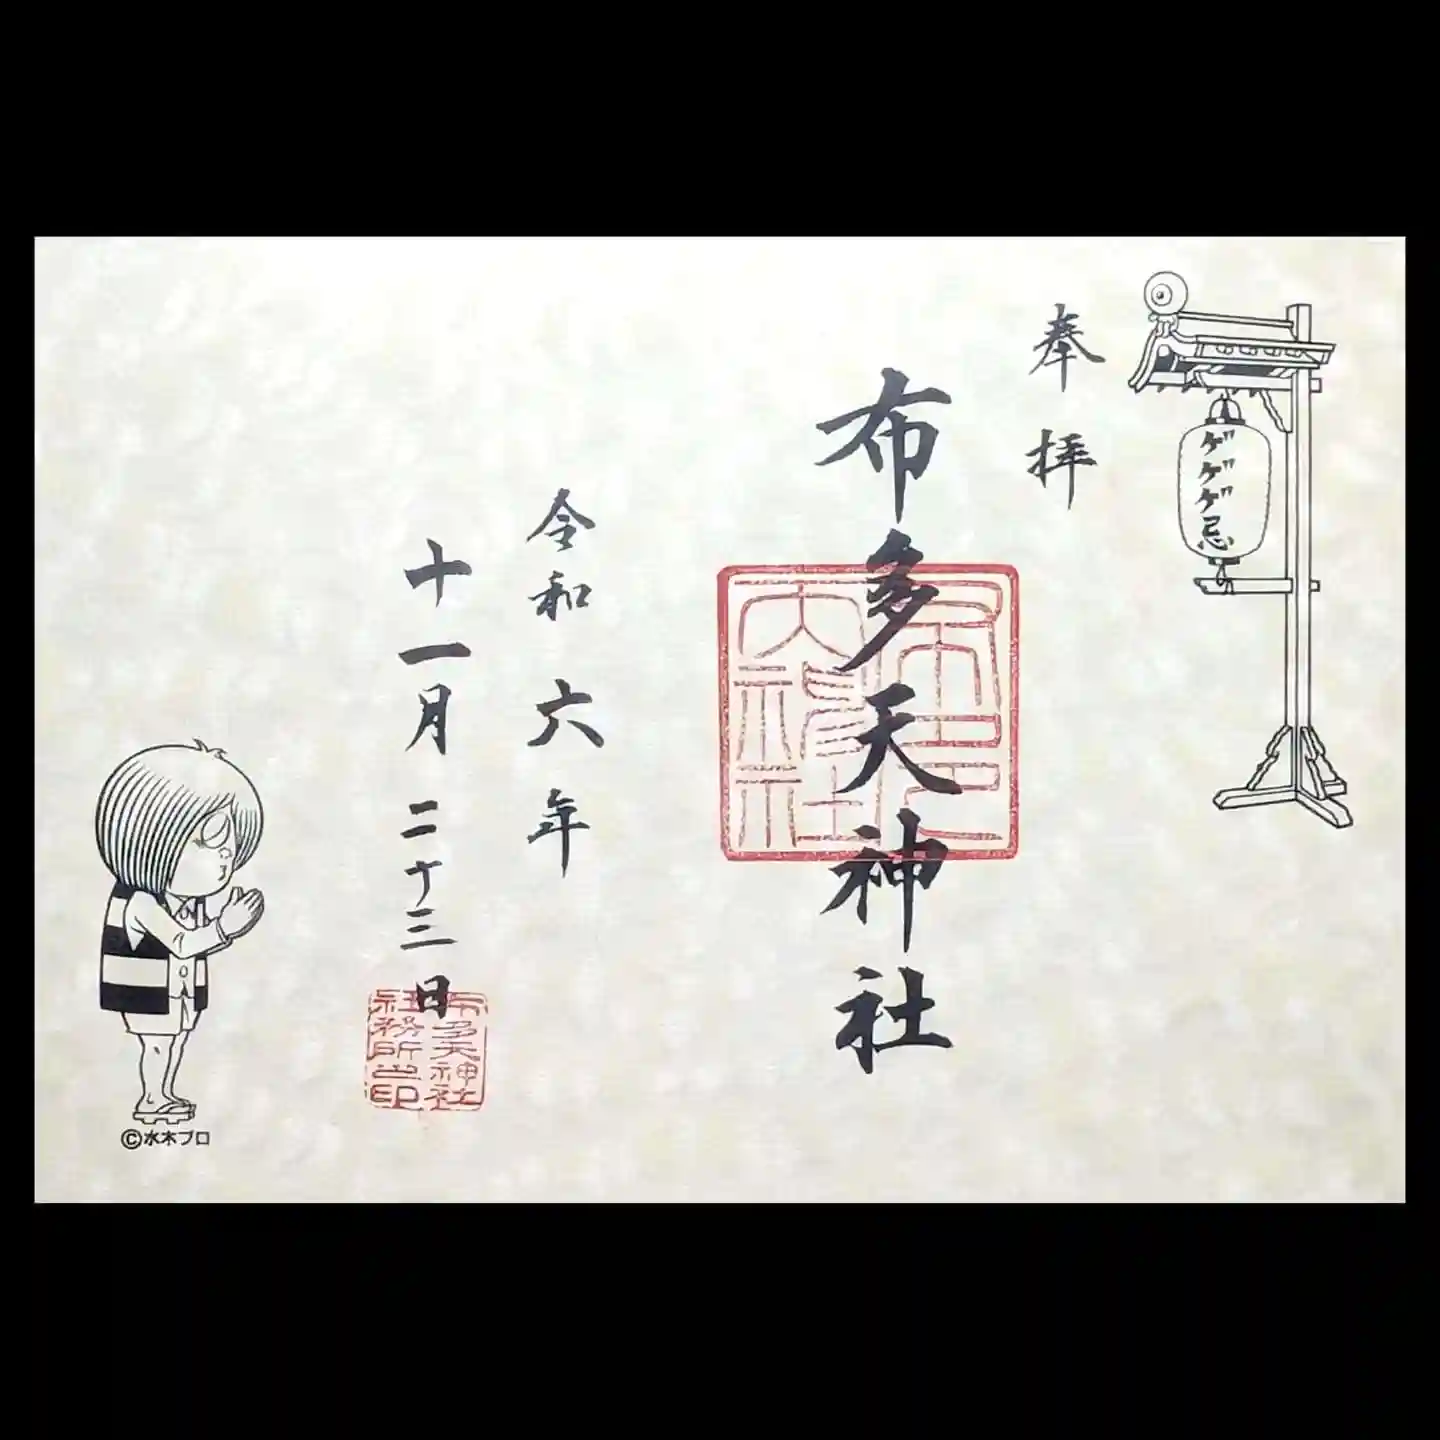 ゲゲゲ忌
奉拝
布多天神社
令和六年
十一月二十三日
布多天神社
社務所之印
©水木プロ